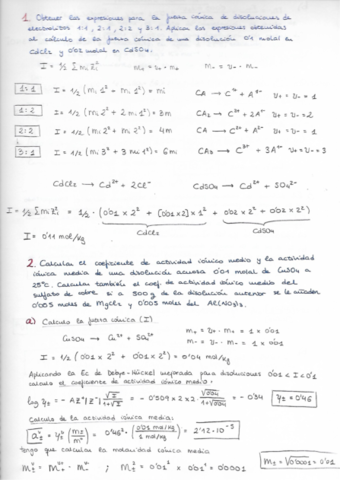 1. Obtener las expresiones para la fuerza iónica de disoluciones de
electrolitos 1:1, 2:1, 2:2 y 3:1. Aplicar las expresiones obtenidas
al cálculo de la fuerza iónica de una disolución 0'1 molal en
CdCl2 y 0'02 molal en CdSO4.
I = 1/2 Σ mi Zi² m+ = ν+ · m+ m- = ν- · m-
1:1 I = 1/2 (mi 1² + mi 1²) = mi CA → C⁺ + A⁻ ν+ = ν- = 1
1:2 I = 1/2 (mi 2² + 2 mi 1²) = 3m CA2 → C²⁺ + 2A⁻ ν+ = ν- = 2
2:2 I = 1/2 (mi 2² + mi 2²) = 4m CA → C²⁺ + A²⁻ ν+ = ν- = 1
3:1 I = 1/2 (mi 3² + 3 mi 1²) = 6mi CA3 → C³⁺ + 3A⁻ ν+ = ν- = 3
CdCl2 → Cd²⁺ + 2Cl⁻ CdSO4 → Cd²⁺ + SO4²⁻
I = 1/2 Σ mi Zi² = 1/2 · (0'01 x 2² + [0'01 x 2] x 1² + 0'02 x 2² + 0'02 x 2²)
I = 0'11 mol/kg CdCl2 CdSO4
2. Calcular el coeficiente de actividad iónico medio y la actividad
iónica media de una disolución acuosa 0'01 molal de CuSO4 a
25°C. Calcular también el coef. de actividad iónico medio del
sulfato de cobre si a 500 g de la disolución anterior se le añaden
0'005 moles de MgCl2 y 0'005 moles del Al(NO3)3.
a) Calculo la fuerza iónica (I)
CuSO4 → Cu²⁺ + SO4²⁻ m+ = ν+ · m+ = 1 x 0'01
m- = ν- · m- = 1 x 0'01
I = 1/2 (0'01 x 2² + 0'01 x 2²) = 0'04 mol/kg
Aplicando la Ec de Debye-Hückel mejorada para disoluciones 0'01 < I < 0'1
calculo el coeficiente de actividad iónico medio:
log γ± = - A Z⁺|Z⁻| √I/(1+√I) = - 0'509 x 2 x 2 √0'04/(1+√0'04) = - 0'34 γ± = 0'46
Cálculo de la actividad iónica media:
= 0'46² · (0'01 mol/kg / 1 mol/kg)² = 2'12·10⁻⁵
Tengo que calcular la molalidad iónica media
; m±² = 0'01¹ x 0'01¹ = 0'0001 m± = √0'0001 = 0'01